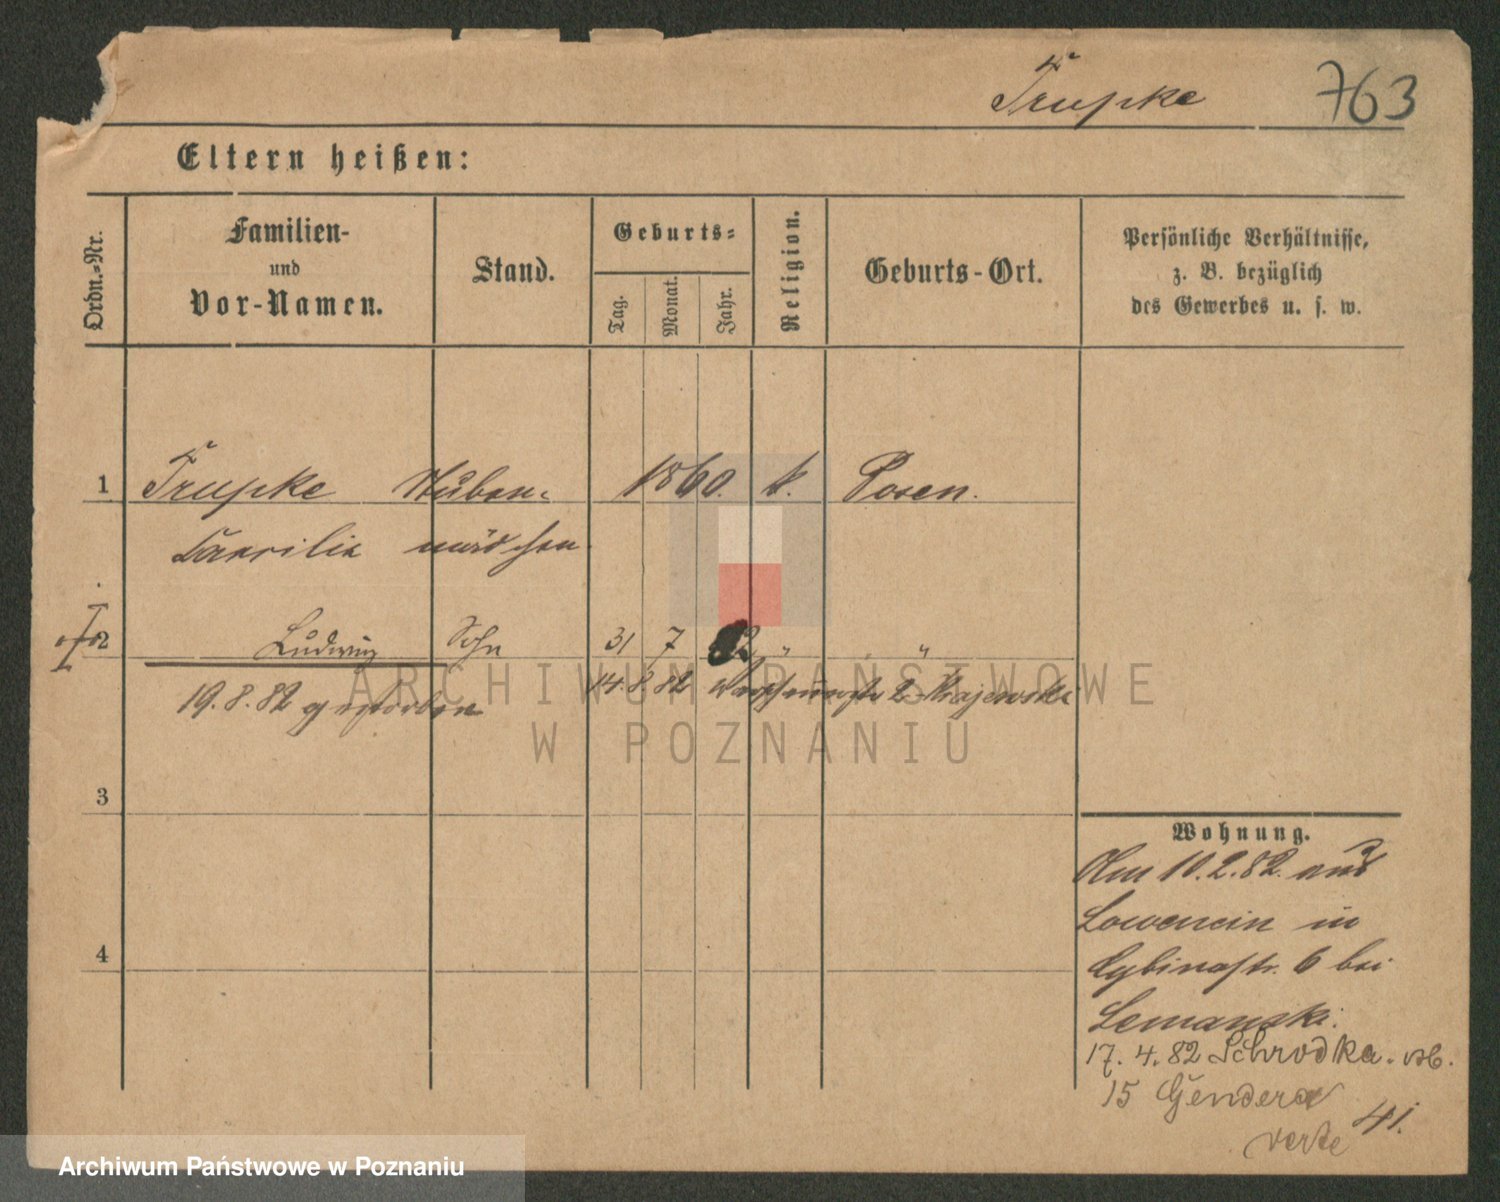 Trupke 763
Eltern heißen:
Ordn.-Nr.
Familien-
und
Vor-Namen.
Stand.
Geburts-
Tag.
Monat.
Jahr.
Religion.
Geburts-Ort.
Persönliche Verhältnisse,
z. B. bezüglich
des Gewerbes u. s. w.
1 Trupke 1860. k. Posen.
mädchen
2 Ludwig Sohn 31 7 82 " "
19.8.82 gestorben 14.8.82 2 Krajewska
3
Wohnung.
Am 10.2.82. aus
in
Cybinastr. 6 bei
Lemanski.
17. 4. 82 Schrodka
15 Gendera
verte 41.
ARCHIWUM PAŃSTWOWE
W POZNANIU
4
Archiwum Państwowe w Poznaniu